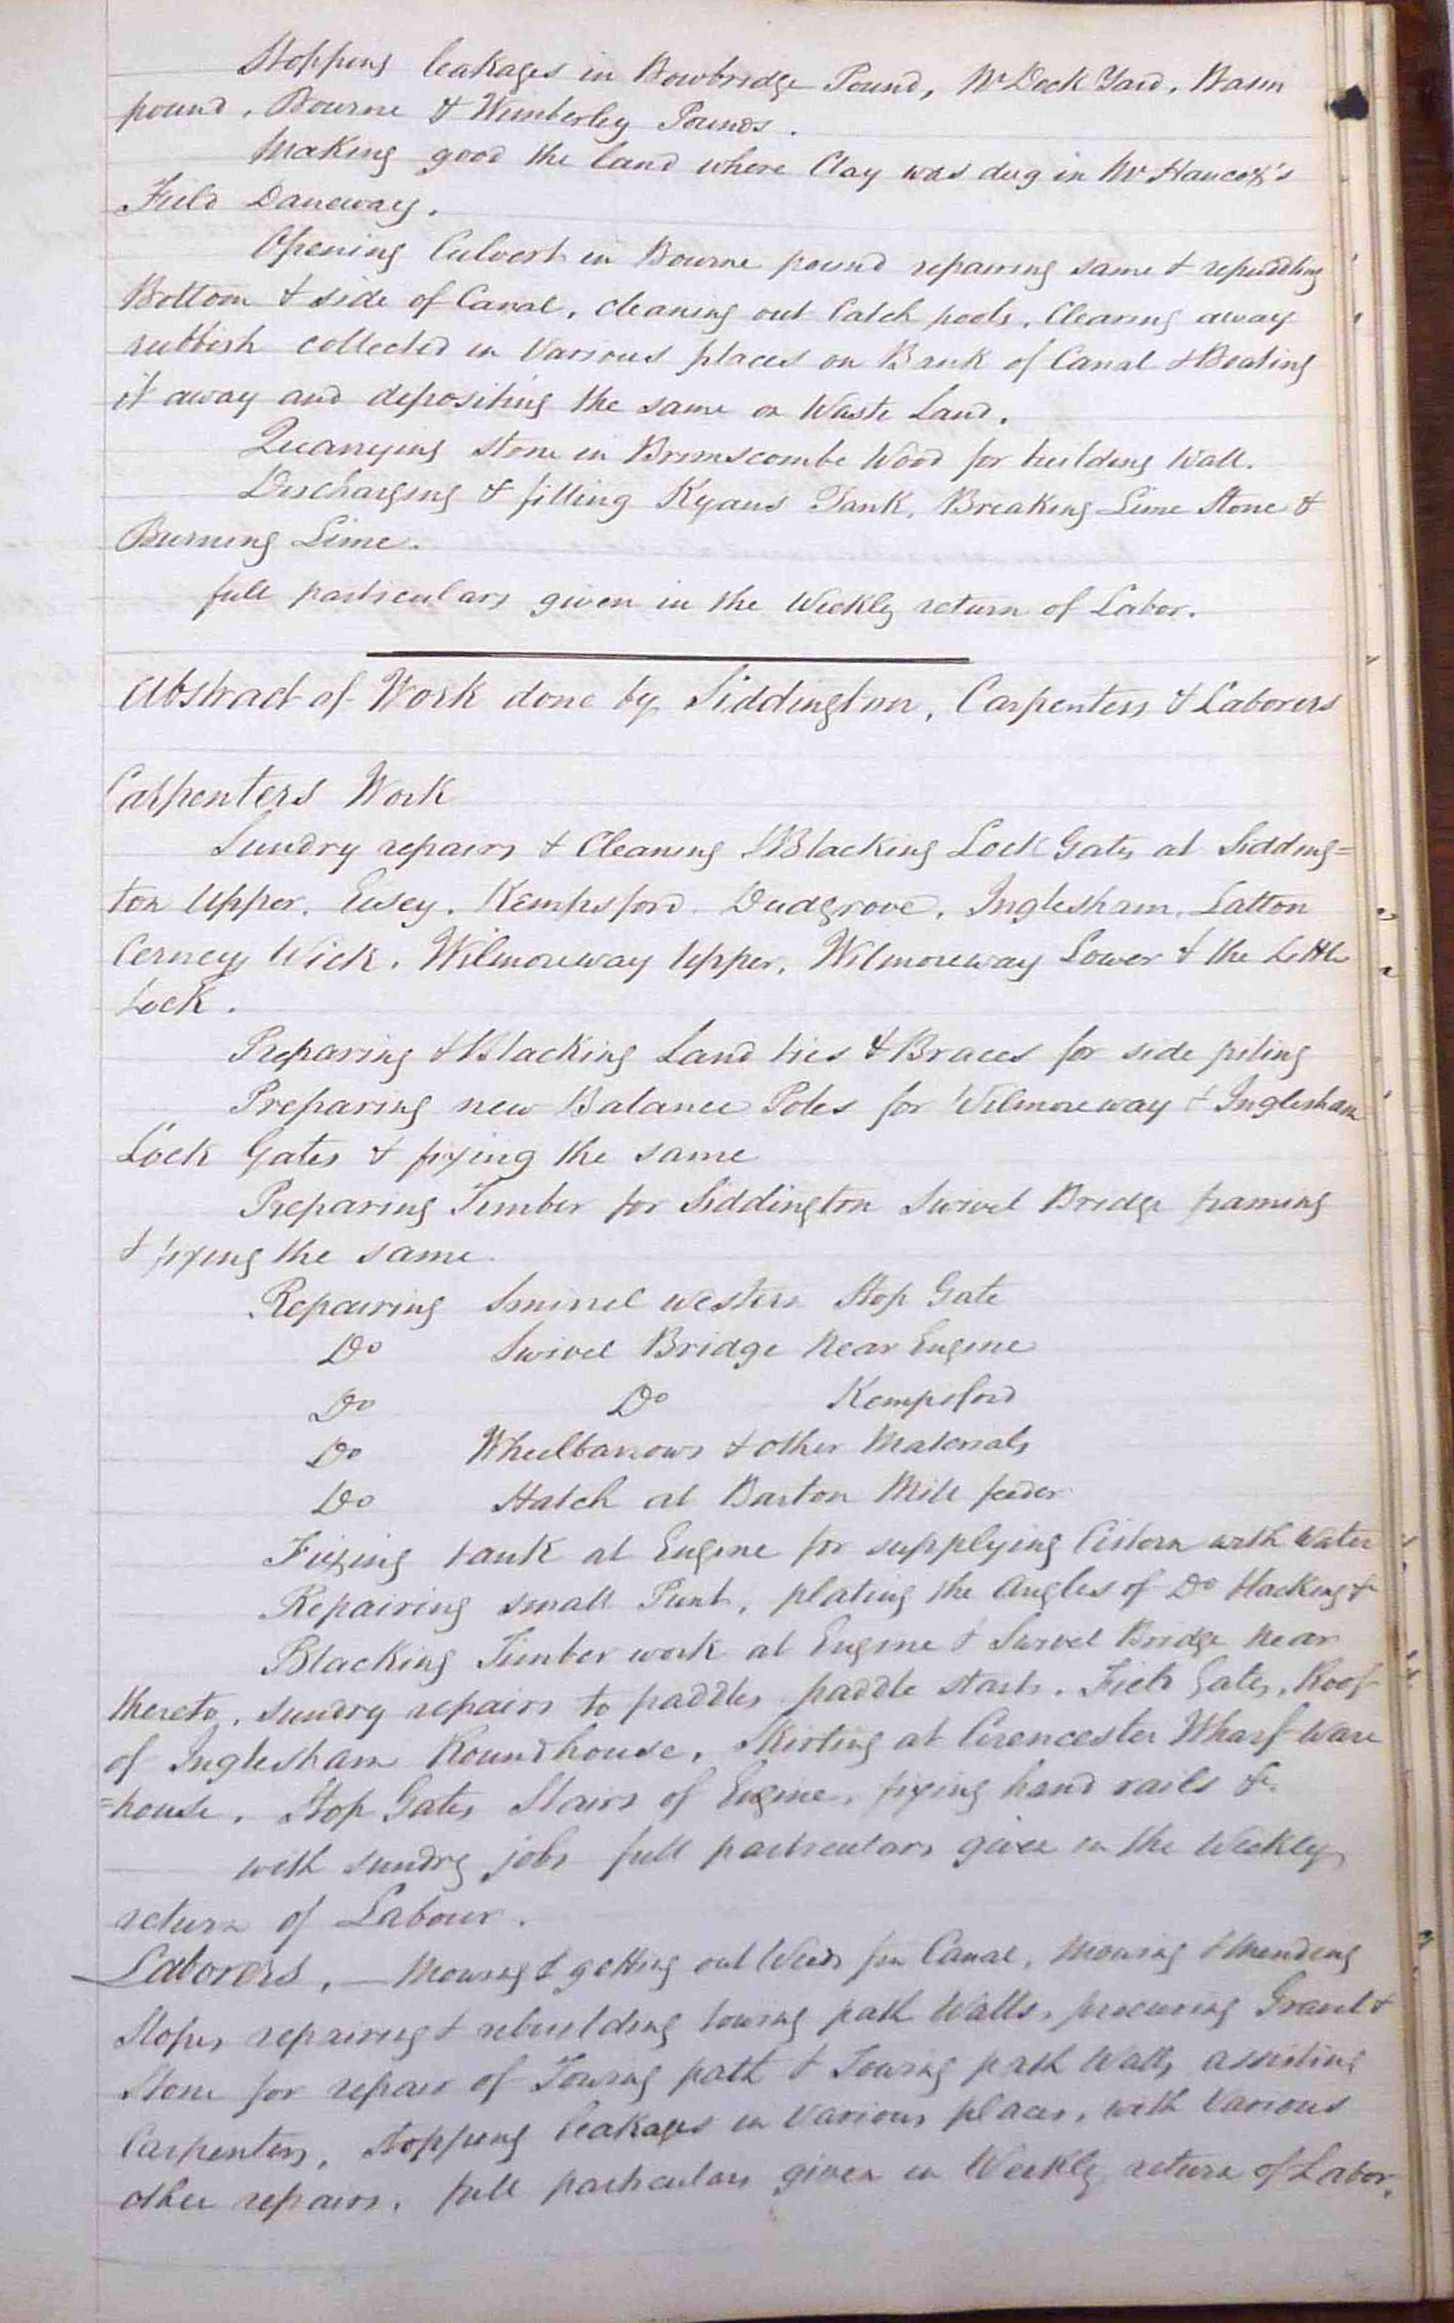 Stopping leakages in Bowbridge Pound, Dock Yard, Basin
pound, Bourne & Wimberley Pounds.
Making good the land where Clay was dug in Mr Hancox's
Field Daneway.
Opening Culvert in Bourne pound repairing same & repuddling
Bottom & side of Canal, cleaning out Catch pools, Clearing away
rubbish collected in Various places on Bank of Canal & Boating
it away and depositing the same on Waste Land.
Quarrying stone in Brimscombe Wood for building Wall.
Discharging & filling Kyans Tank, Breaking Lime Stone &
Burning Lime.
full particulars given in the Weekly return of Labor.
Abstract of Work done by Siddington, Carpenters & Laborers
Carpenters Work
Sundry repairs & Cleaning & Blacking Lock Gates at Sidding=
ton Upper, Eisey, Kempsford, Dudgrove, Inglesham, Latton
Cerney Wick, Wilmoreway Upper, Wilmoreway Lower & the Little
Lock.
Preparing & Blacking Land ties & Braces for side piling
Preparing new Balance Poles for Wilmoreway & Inglesham
Lock Gates & fixing the same
Preparing Timber for Siddington Swivel Bridge framing
& fixing the same
Repairing Smerril western Stop Gate
Do Swivel Bridge Near Engine
Do Do Kempsford
Do Wheelbarrows & other Materials
Do Hatch at Barton Mill feeder
Fixing tank at Engine for supplying Cistern with Water
Repairing small Punt, plating the Angles of Do blacking &c
Blacking Timber work at Engine & Swivel Bridge Near
thereto, sundry repairs to paddles paddle starts, Field Gates, Roof
of Inglesham Roundhouse, Skirting at Cirencester Wharf Ware
=house, Stop Gates Stairs of Engine, fixing hand rails &c.
with sundry jobs full particulars given in the Weekly
return of Labour.
Laborers, — Mowing & getting out Weeds fm Canal, Mowing & Mending
Slopes, repairing & rebuilding towing path Walls, procuring Gravel &
Stone for repair of Towing path & Towing path Walls, assisting
Carpenters, Stopping leakages in Various places, with Various
other repairs, full particulars given in Weekly return of Labor.